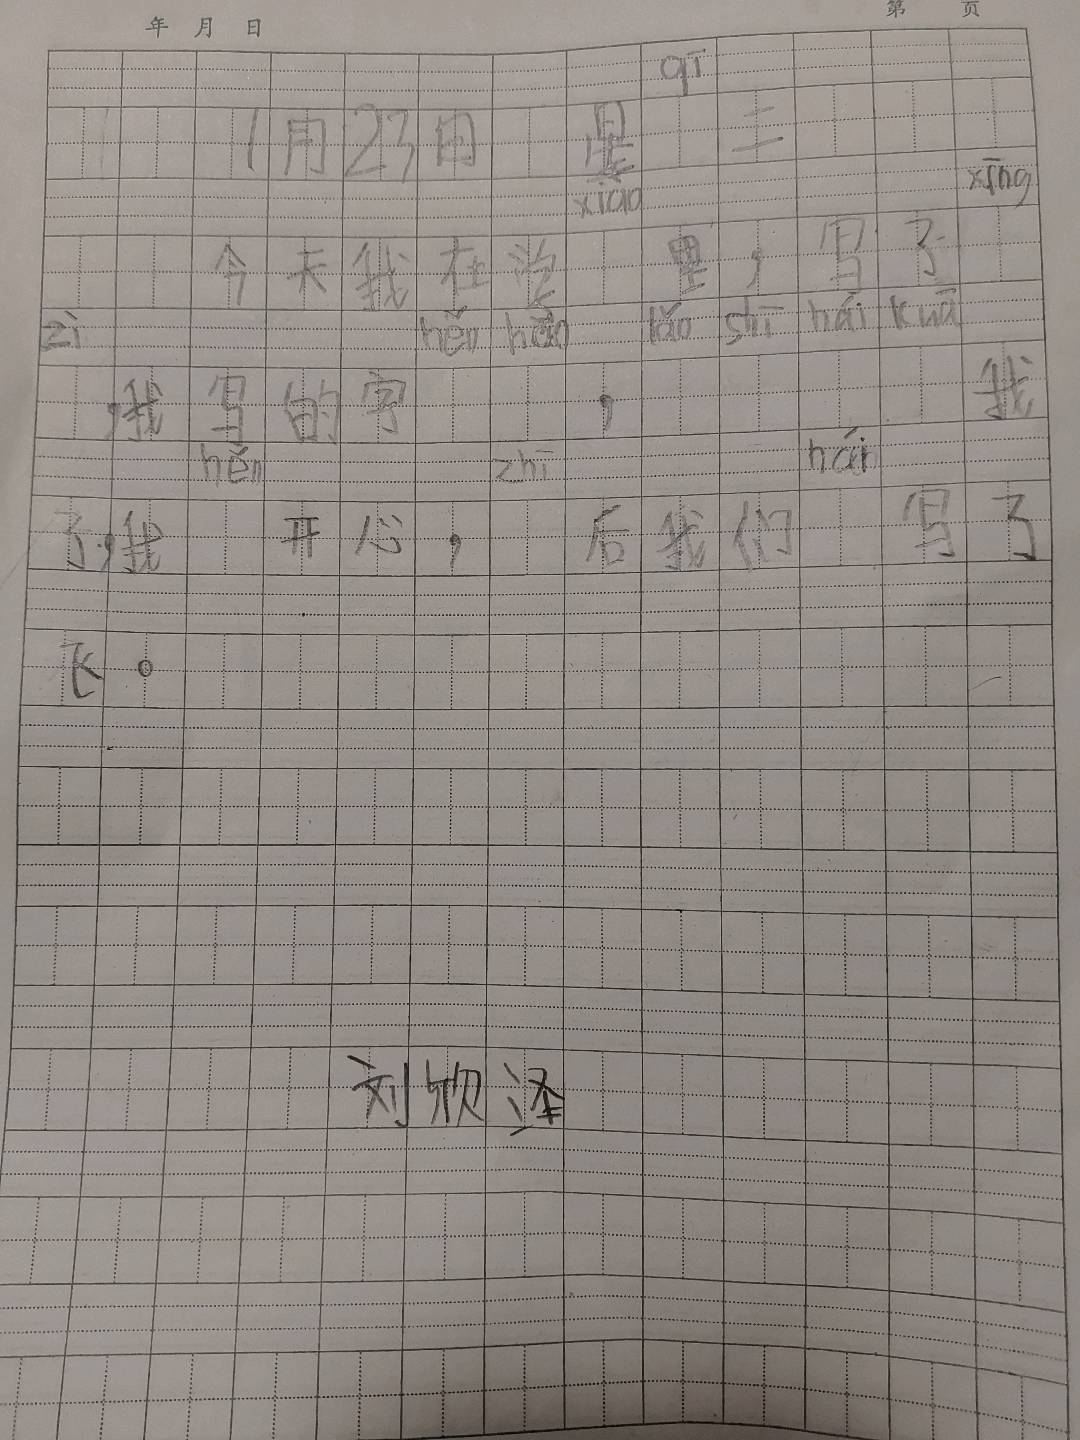 年 月 日 第 页
qī
1月23日 星 三
xiào xīng
今天我在学 里，写了
zì hěn hǎo lǎo shī hái kuā
，我写的字 ， 我
hěn zhī hái
了，我 开心， 后我们 写了
飞。
刘欣泽